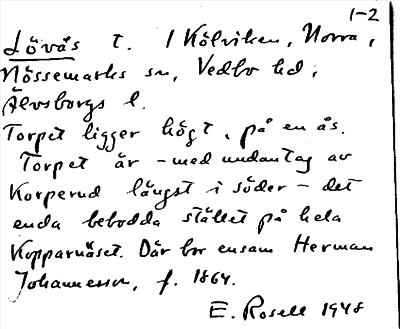 1-2
Lövås t. 1 Kölviken, Norra,
Nössemarks sn, Vedbo hd,
Älvsborgs l.
Torpet ligger högt, på en ås.
Torpet är – med undantag av
Korperud längst i söder – det
enda bebodda stället på hela
Kopparnäset. Där bor ensam Herman
Johannesson, f. 1864.
E. Rosell 1948